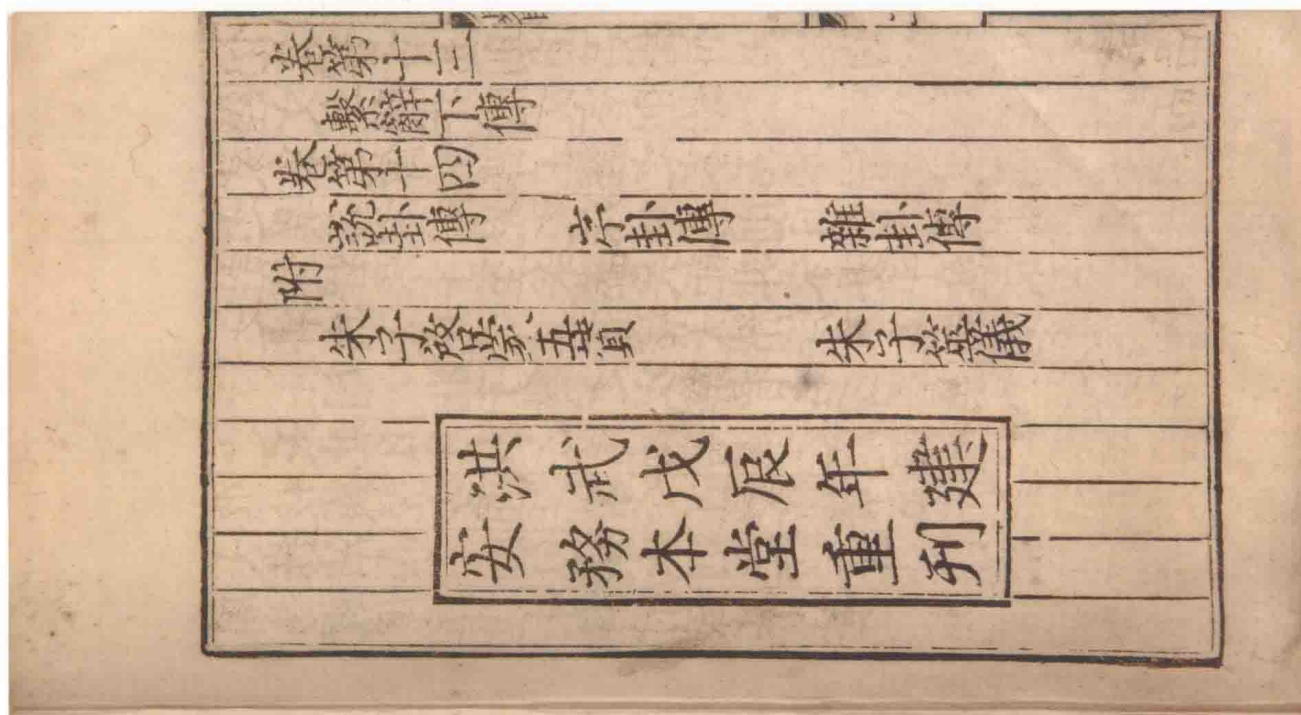 卷第十三
繫辭下傳
卷第十四
說卦傳 序卦傳 雜卦傳
附
朱子啓蒙五贊 朱子筮儀
洪武戊辰年建
安務本堂重刊